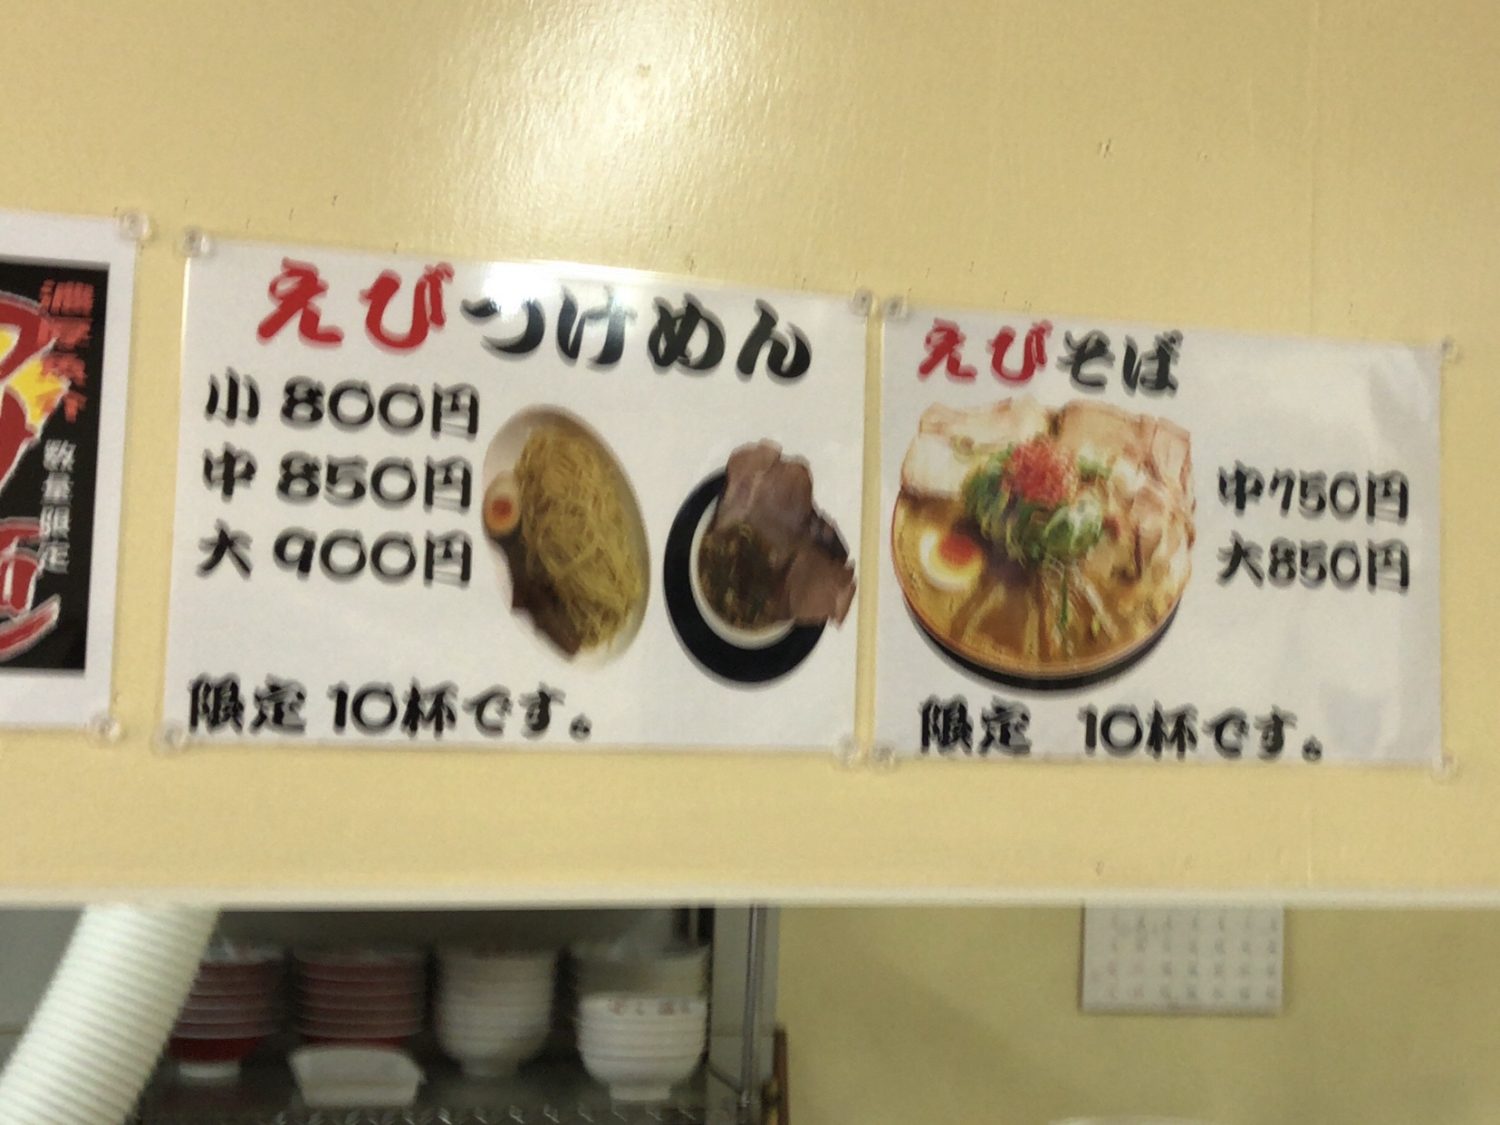 数量限定
えびつけめん
小 800円
中 850円
大 900円
限定 10杯です。
えびそば
中750円
大850円
限定 10杯です。